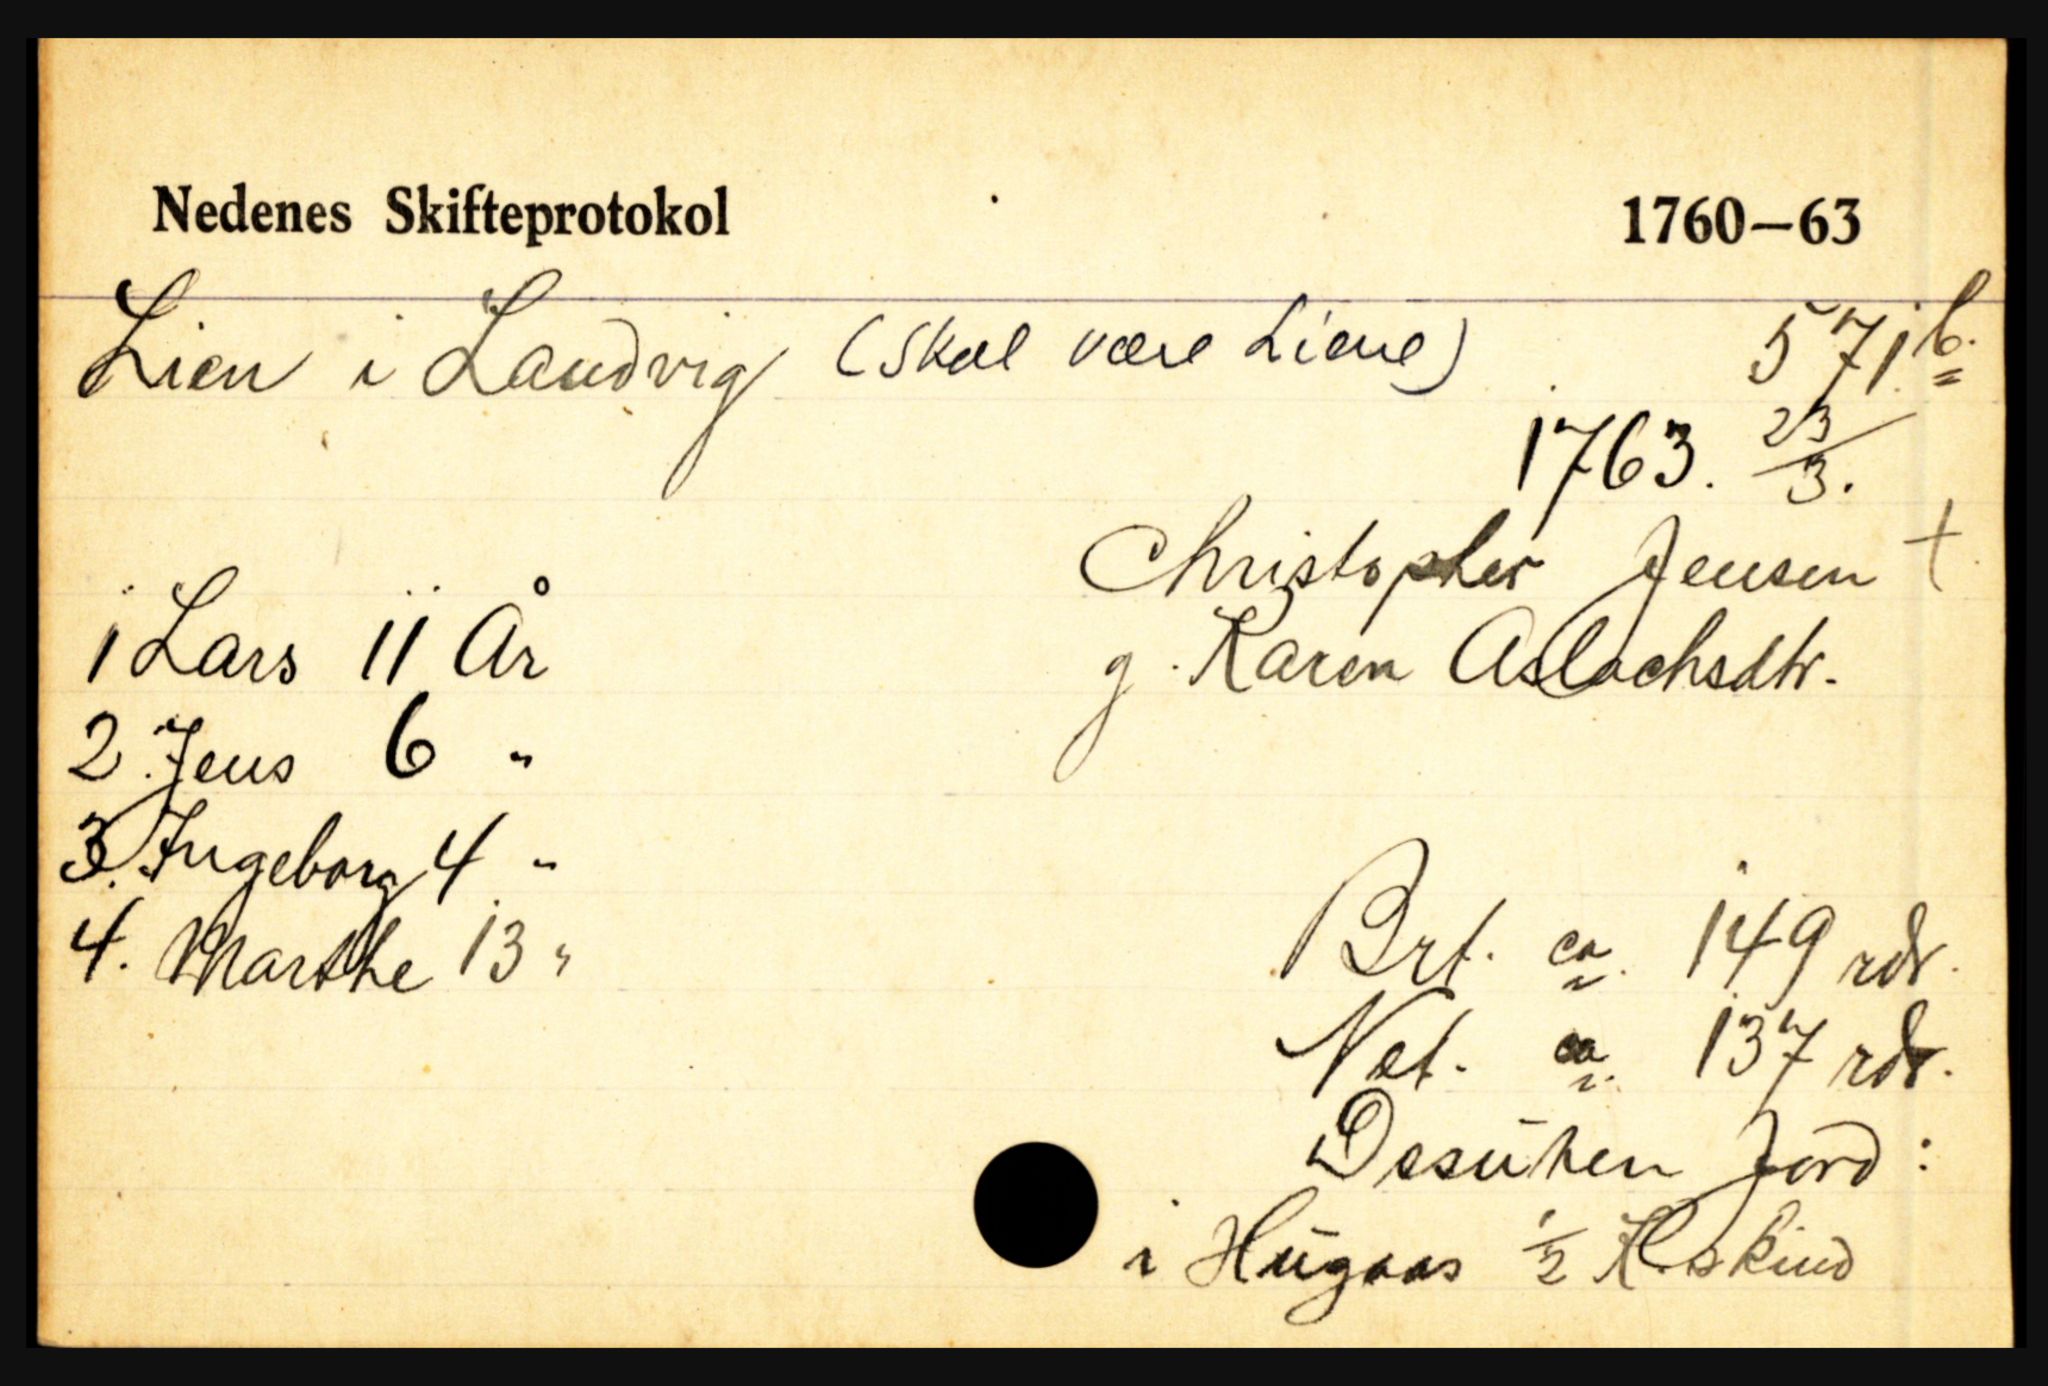 Nedenes Skifteprotokol 1760—63
Lien i Landvig (skal være Liene) 571 b.
1763. 23/3.
Christopher Jensen †
1 Lars 11 År
g. Karen Aslachsdtr.
2. Jens 6 "
3. Ingeborg 4 "
4. Marthe 13 "
Brt. ca. 149 rdr.
Net. ca. 137 rdr.
Desuten Jord:
i Hugaas 1/2 K skind